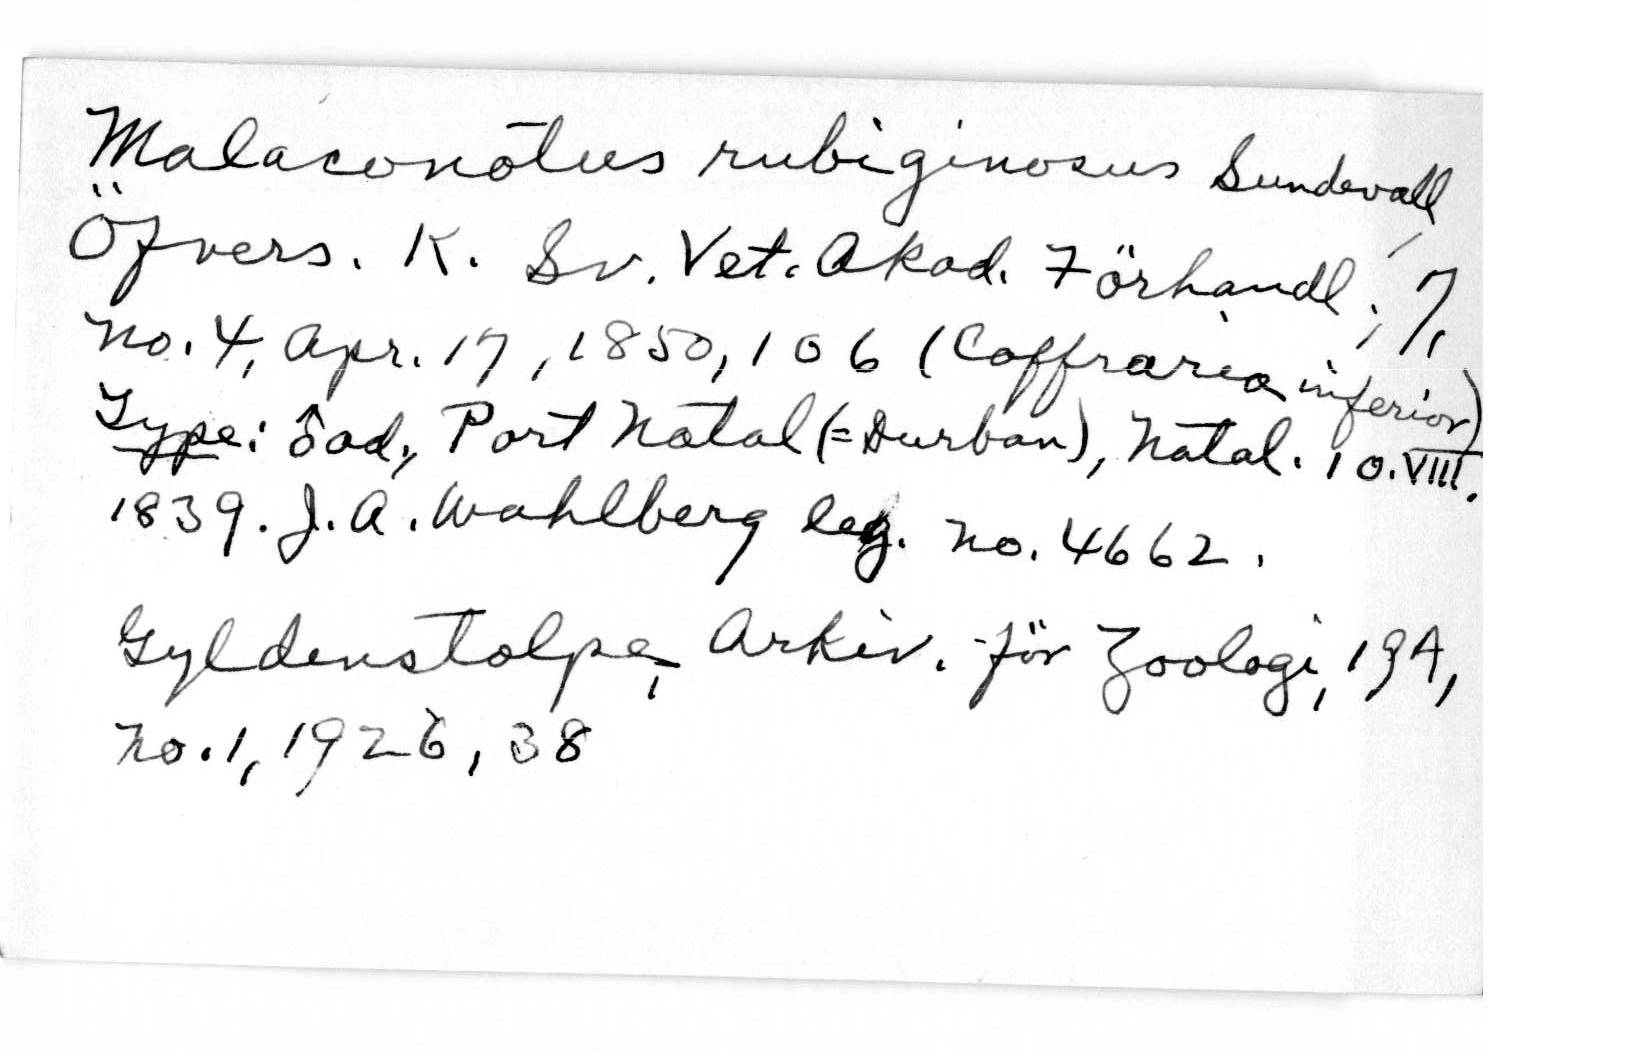 Malaconotus rubiginosus Sundevall,
Öfvers. K. Sv. Vet. Akad. Förhandl., 7,
no. 4, Apr. 17, 1850, 106 (Caffraria inferior)
Type: ♂ ad., Port Natal (= Durban), Natal. 10.VIII.
1839. J. A. Wahlberg leg. No. 4662.
Gyldenstolpe, Arkiv. för Zoologi, 19A,
no. 1, 1926, 38